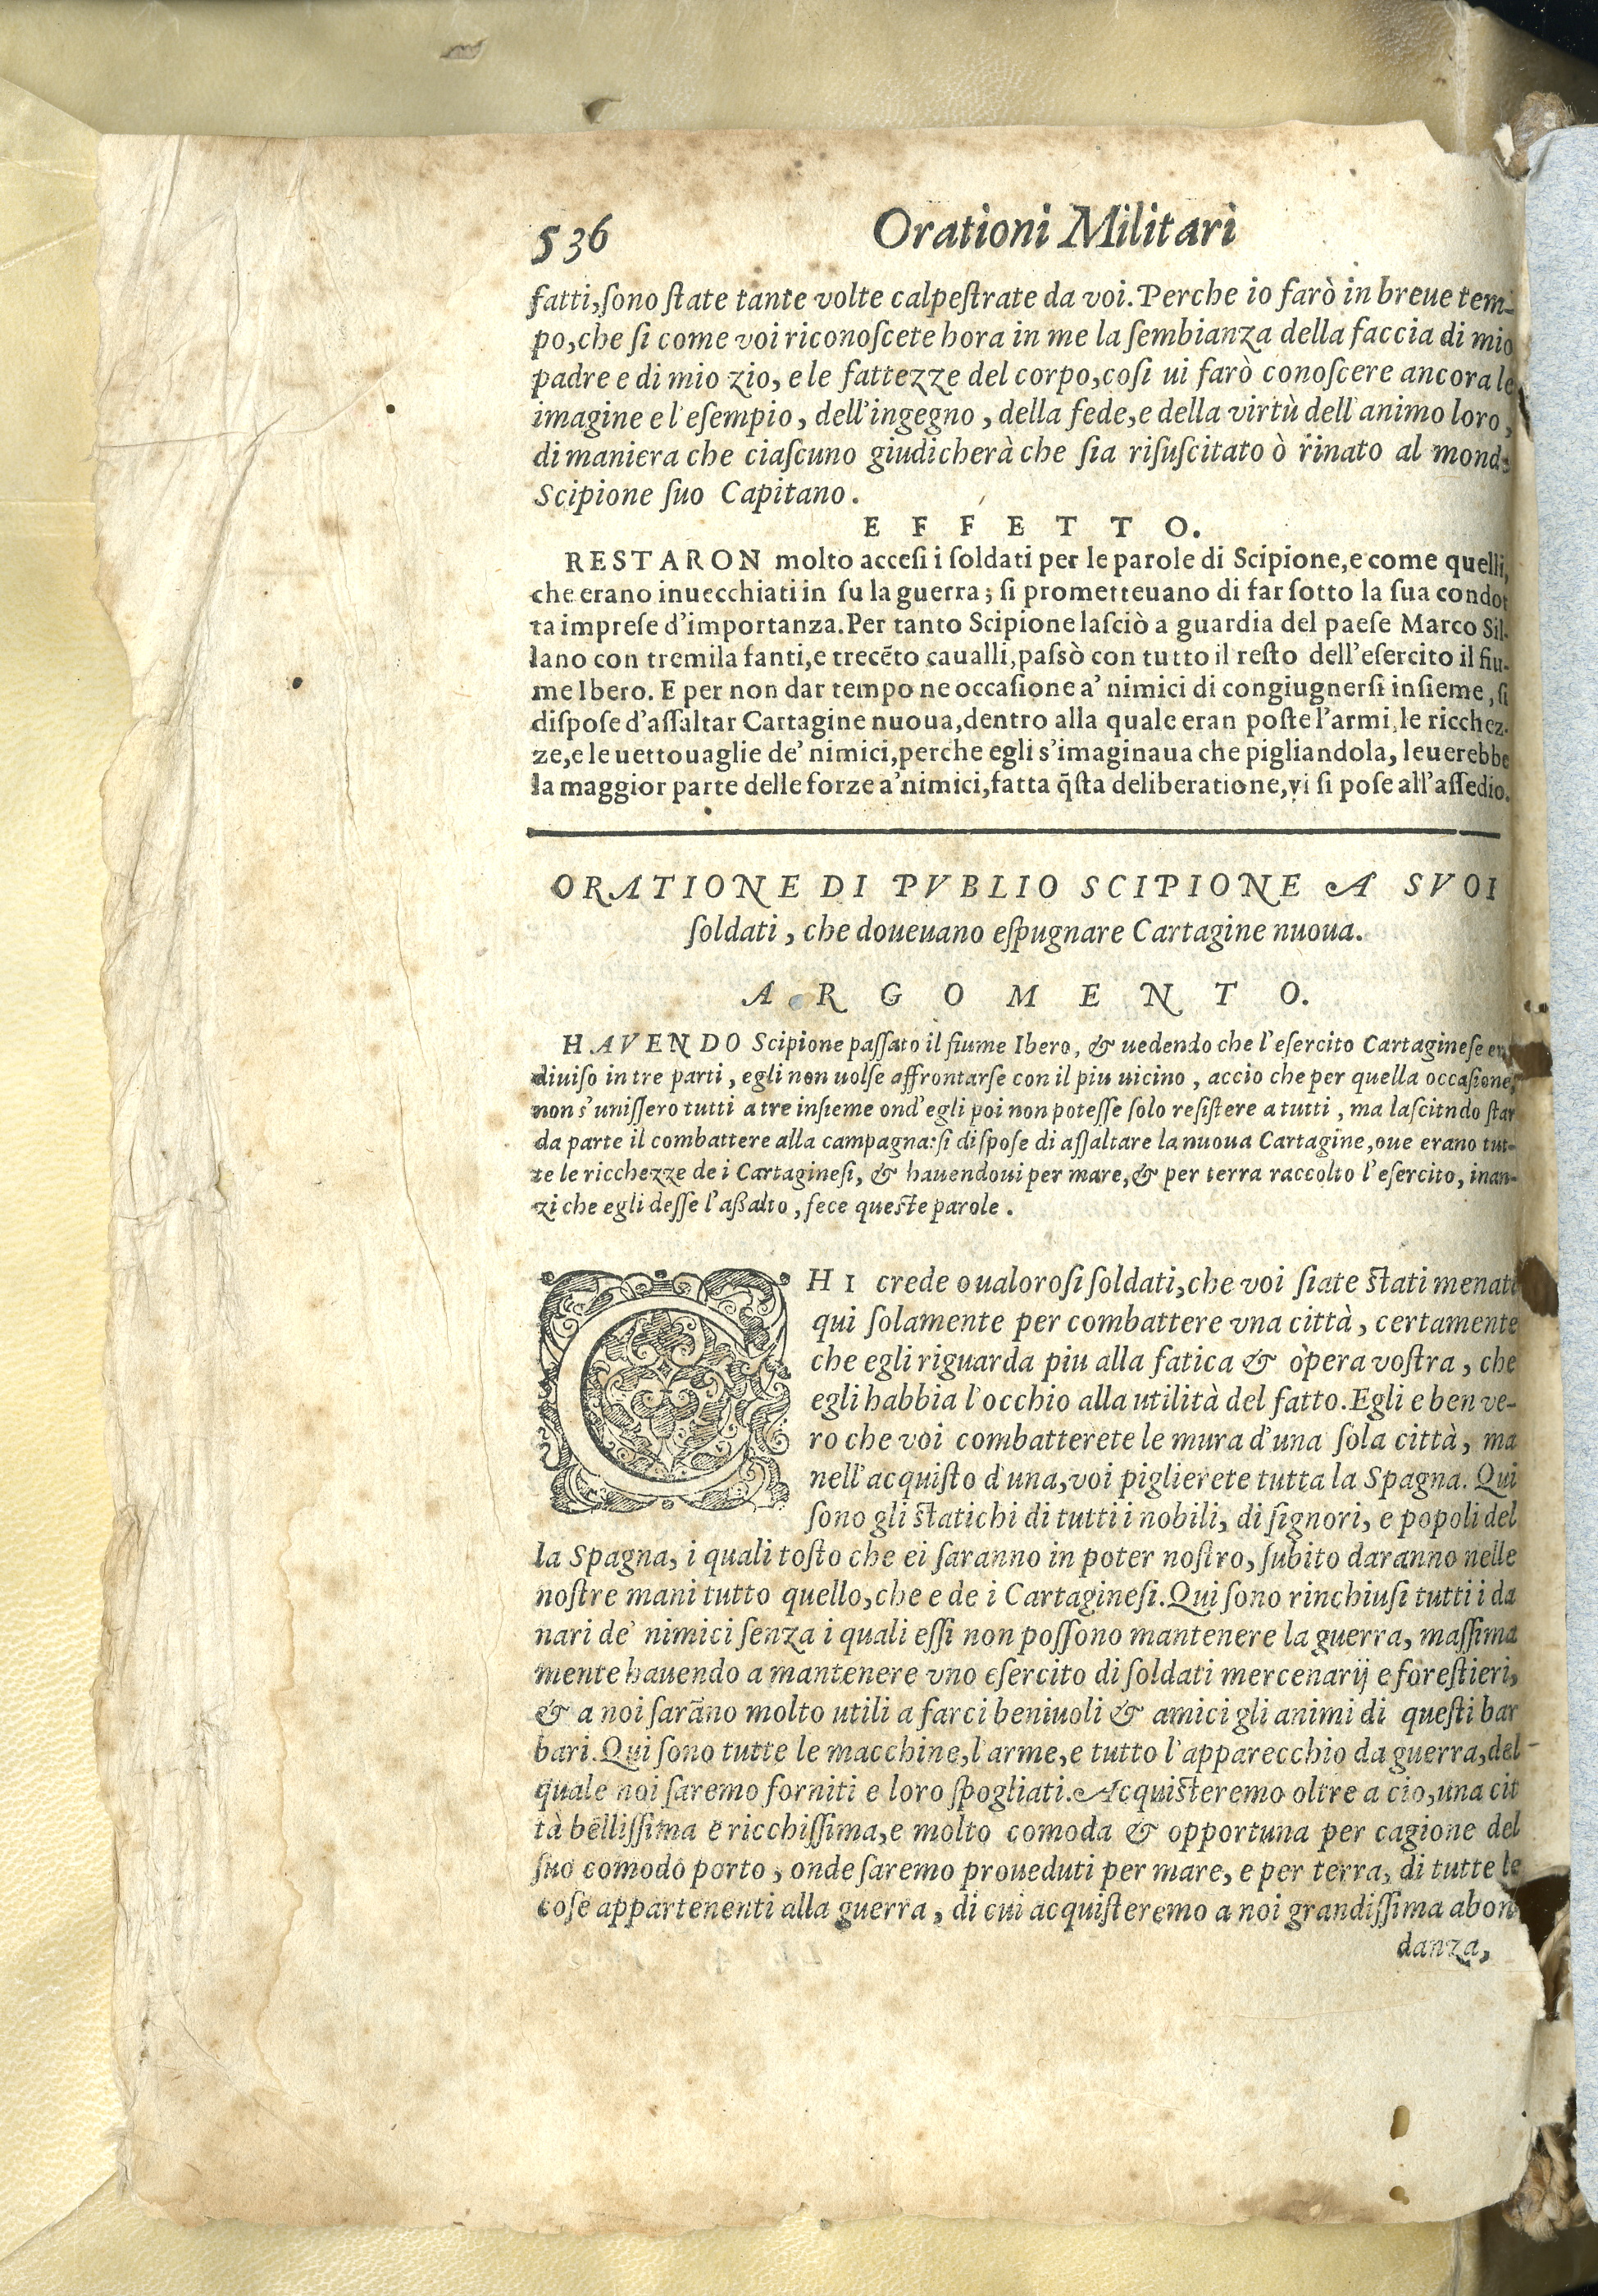 536 Orationi Militari
fatti,ſono ſtate tante volte calpeſtrate da voi.Perche io farò in breue tem-
po,che ſi come voi riconoſcete hora in me la ſembianza della faccia di mio
padre e di mio zio, e le fattezze del corpo,coſi ui farò conoſcere ancora le
imagine e l'eſempio, dell'ingegno, della fede,e della virtù dell'animo loro,
di maniera che ciaſcuno giudicherà che ſia riſuſcitato ò rinato al mondo
Scipione ſuo Capitano.
EFFETTO.
RESTARON molto acceſi i ſoldati per le parole di Scipione,e come quelli,
che erano inuecchiati in ſu la guerra; ſi prometteuano di far ſotto la ſua condot
ta impreſe d'importanza.Per tanto Scipione laſciò a guardia del paeſe Marco Sil-
lano con tremila fanti,e trecẽto caualli,paſsò con tutto il reſto dell'eſercito il fiu-
me Ibero. E per non dar tempo ne occaſione a' nimici di congiugnerſi inſieme, ſi
diſpoſe d'aſſaltar Cartagine nuoua,dentro alla quale eran poſte l'armi, le ricchez-
ze,e le uettouaglie de' nimici,perche egli s'imaginaua che pigliandola, leuerebbe
la maggior parte delle forze a'nimici,fatta q̃ſta deliberatione,vi ſi poſe all'aſſedio.
ORATIONE DI PVBLIO SCIPIONE A SVOI
ſoldati, che doueuano eſpugnare Cartagine nuoua.
ARGOMENTO.
HAVENDO Scipione paſſato il fiume Ibero, & uedendo che l'eſercito Cartagineſe era
diuiſo in tre parti, egli non uolſe affrontarſe con il piu uicino, accio che per quella occaſione,
non s'uniſſero tutti a tre inſieme ond'egli poi non poteſſe ſolo reſiſtere a tutti, ma laſcitndo ſtar
da parte il combattere alla campagna:ſi diſpoſe di aſſaltare la nuoua Cartagine,oue erano tut-
te le ricchezze de i Cartagineſi, & hauendoui per mare,& per terra raccolto l'eſercito, inan-
zi che egli deſſe l'aßalto, fece queſte parole.
CHI crede o ualoroſi ſoldati,che voi ſiate ſtati menati
qui ſolamente per combattere vna città, certamente
che egli riguarda piu alla fatica & òpera voſtra, che
egli habbia l'occhio alla utilità del fatto.Egli e ben ve-
ro che voi combatterete le mura d'una ſola città, ma
nell'acquiſto d'una,voi piglierete tutta la Spagna. Qui
ſono gli ſtatichi di tutti i nobili, di ſignori, e popoli del
la Spagna, i quali toſto che ei ſaranno in poter noſtro, ſubito daranno nelle
noſtre mani tutto quello,che e de i Cartagineſi.Qui ſono rinchiuſi tutti i da
nari de' nimici ſenza i quali eſſi non poſſono mantenere la guerra, maſſima
mente hauendo a mantenere vno eſercito di ſoldati mercenarij e foreſtieri,
& a noi ſarãno molto utili a farci beniuoli & amici gli animi di queſti bar
bari.Qui ſono tutte le macchine,l'arme,e tutto l'apparecchio da guerra,del
quale noi ſaremo forniti e loro ſpogliati.Acquiſteremo oltre a cio,una cit
tà belliſſima e ricchiſſima,e molto comoda & opportuna per cagione del
ſuo comodo porto, onde ſaremo proueduti per mare, e per terra, di tutte le
coſe appartenenti alla guerra, di cui acquiſteremo a noi grandiſſima abon
danza,